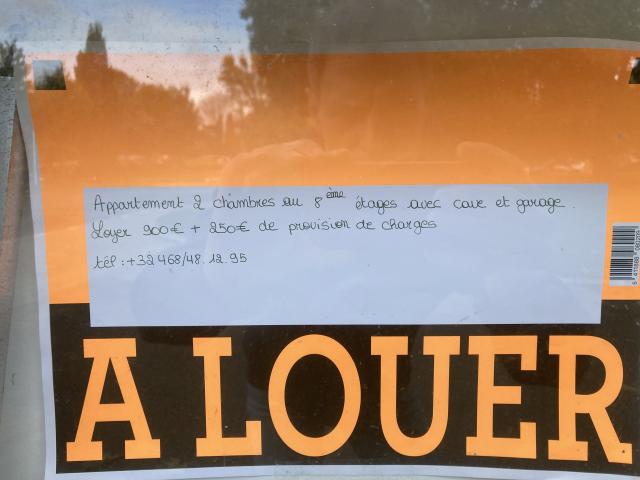 Appartement 2 chambres au 8ème étages avec cave et garage.
Loyer 900€ + 250€ de provision de charges
tél : +32 468/48.12.95
A LOUER